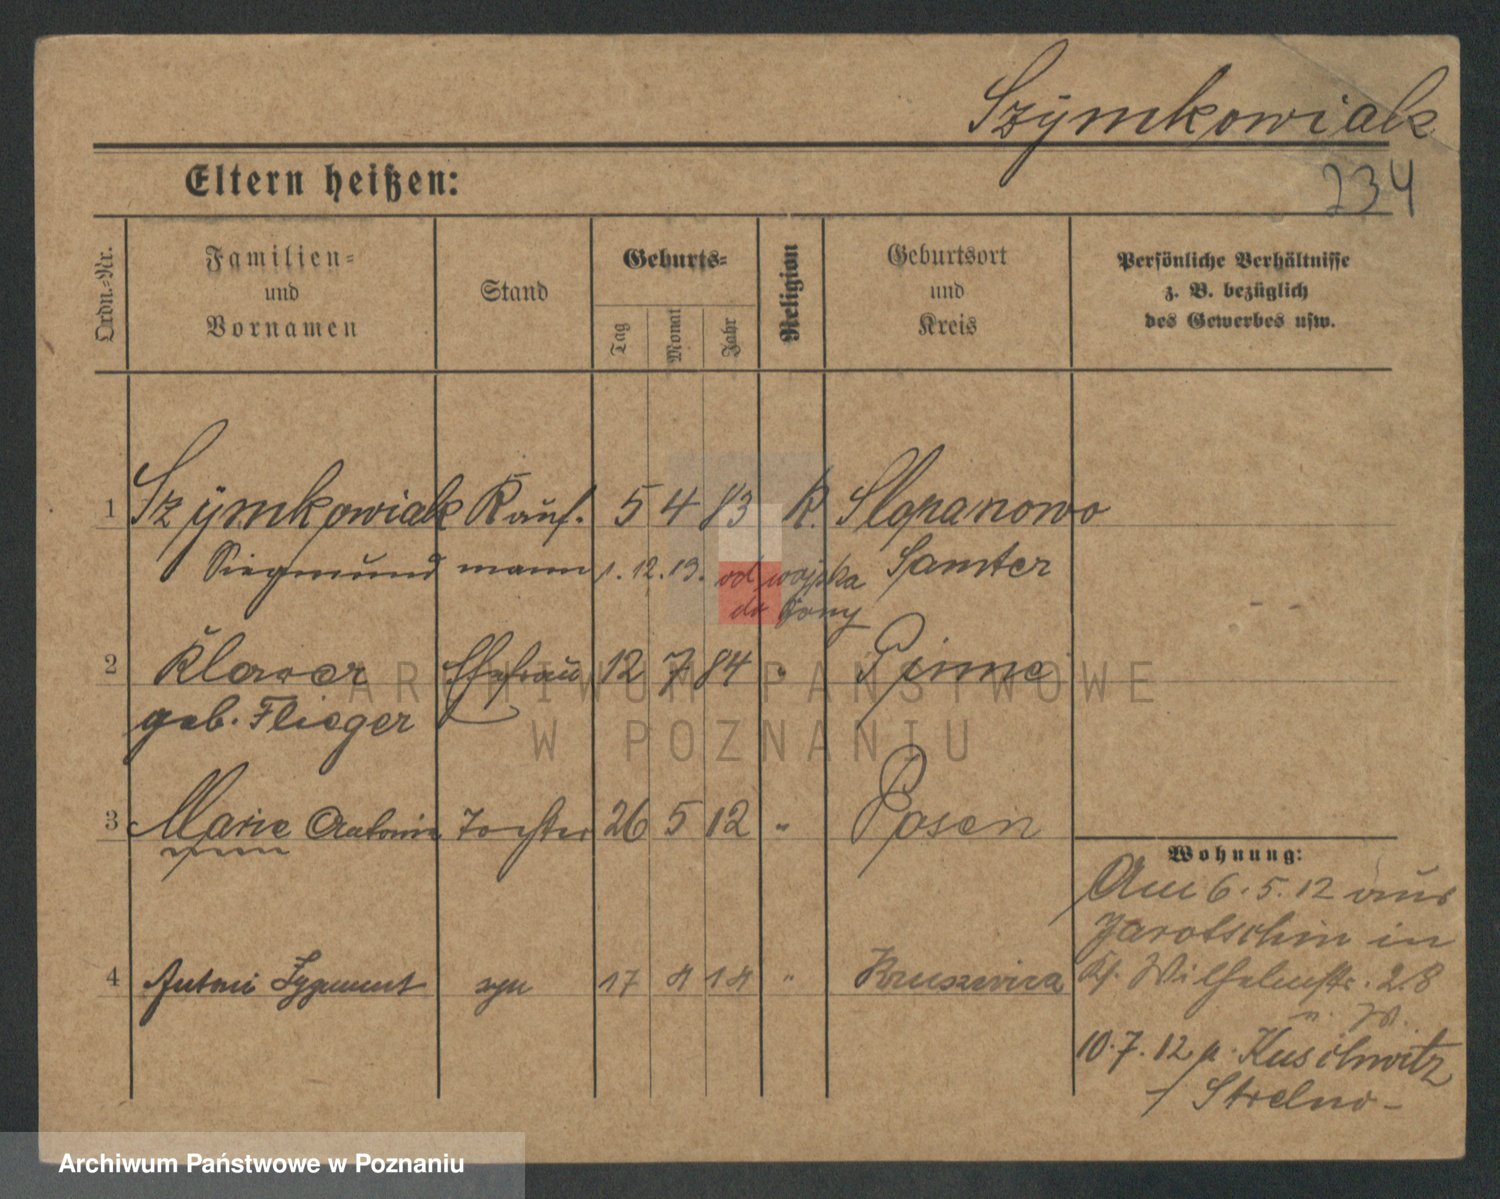 Szymkowiak
234
Eltern heißen:
Ordn.-Nr.
Familien-
und
Vornamen
Stand
Geburts-
Tag
Monat
Jahr
Religion
Geburtsort
und
Kreis
Persönliche Verhältnisse
z. B. bezüglich
des Gewerbes usw.
1 Szymkowiak Kauf. 5 4 83 K. Slopanowo
Siegmund mann 1. 12. 19. od wojska Samter
do żony
2 12 7 84 " Pinne
geb. Flieger
3 Marie Antonie Tochter 26 5 12 " Posen
Wohnung:
Am 6. 5. 12 aus
Jarotschin in
Wilhelmstr. 28
4 Antoni Zygmunt syn 17 14 " Kruszwica
10. 7. 12 Kuschwitz
Strelno -
ARCHIWUM PAŃSTWOWE
W POZNANIU
Archiwum Państwowe w Poznaniu